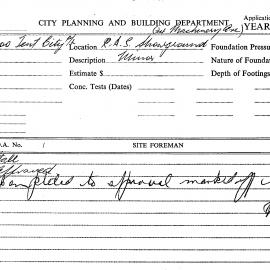 CITY PLANNING AND BUILDING DEPARTMENT
Application
(as Machinery Ave) YEAR
Tent City Location R.A.S Showground Foundation Pressu
Description Minor Nature of Foundat
Estimate $ Depth of Footings
Conc. Tests (Dates)
D.A. No. / SITE FOREMAN
completed to approval marked off